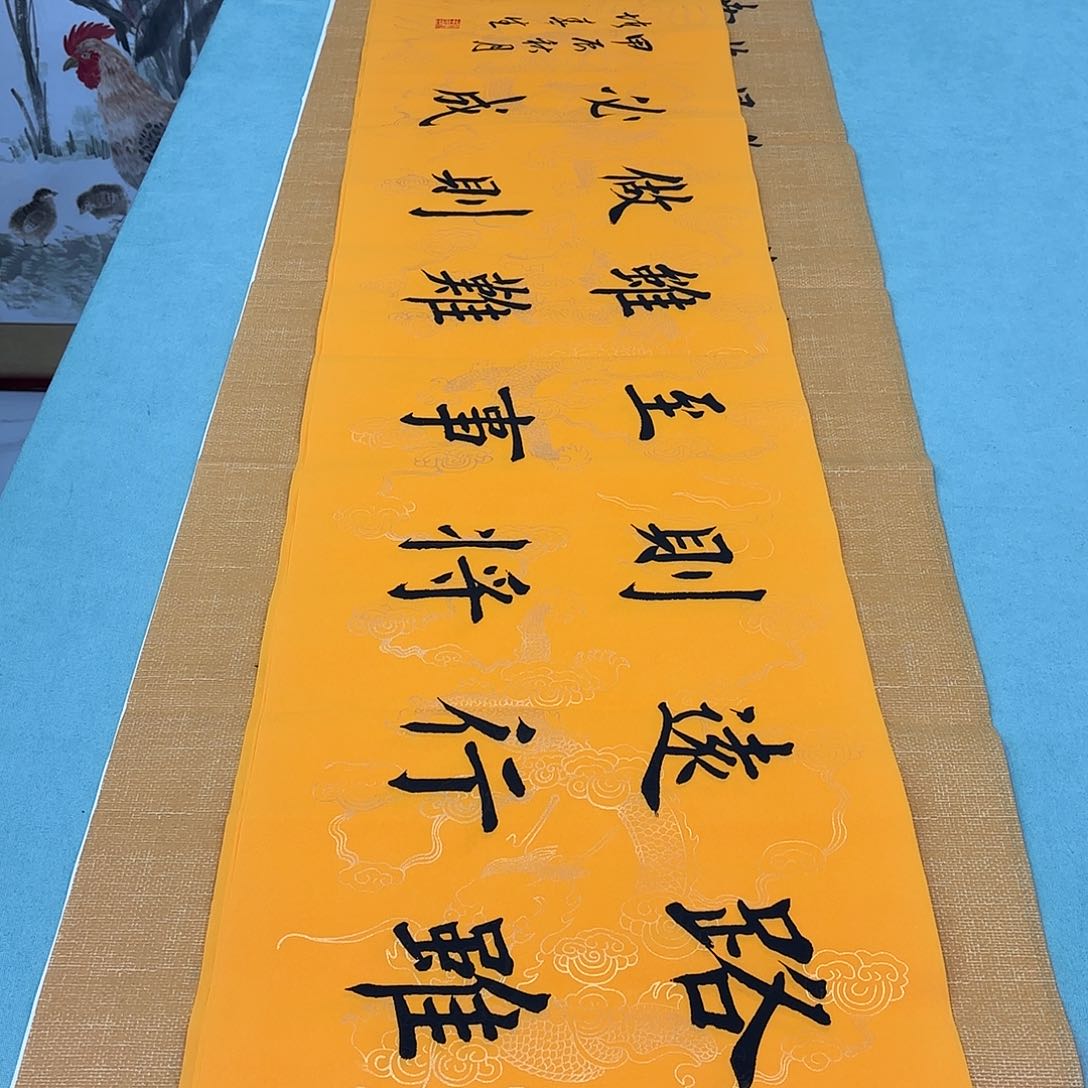 路雖
遠行
則將
至事
雖難
做則
必成
甲辰秋月